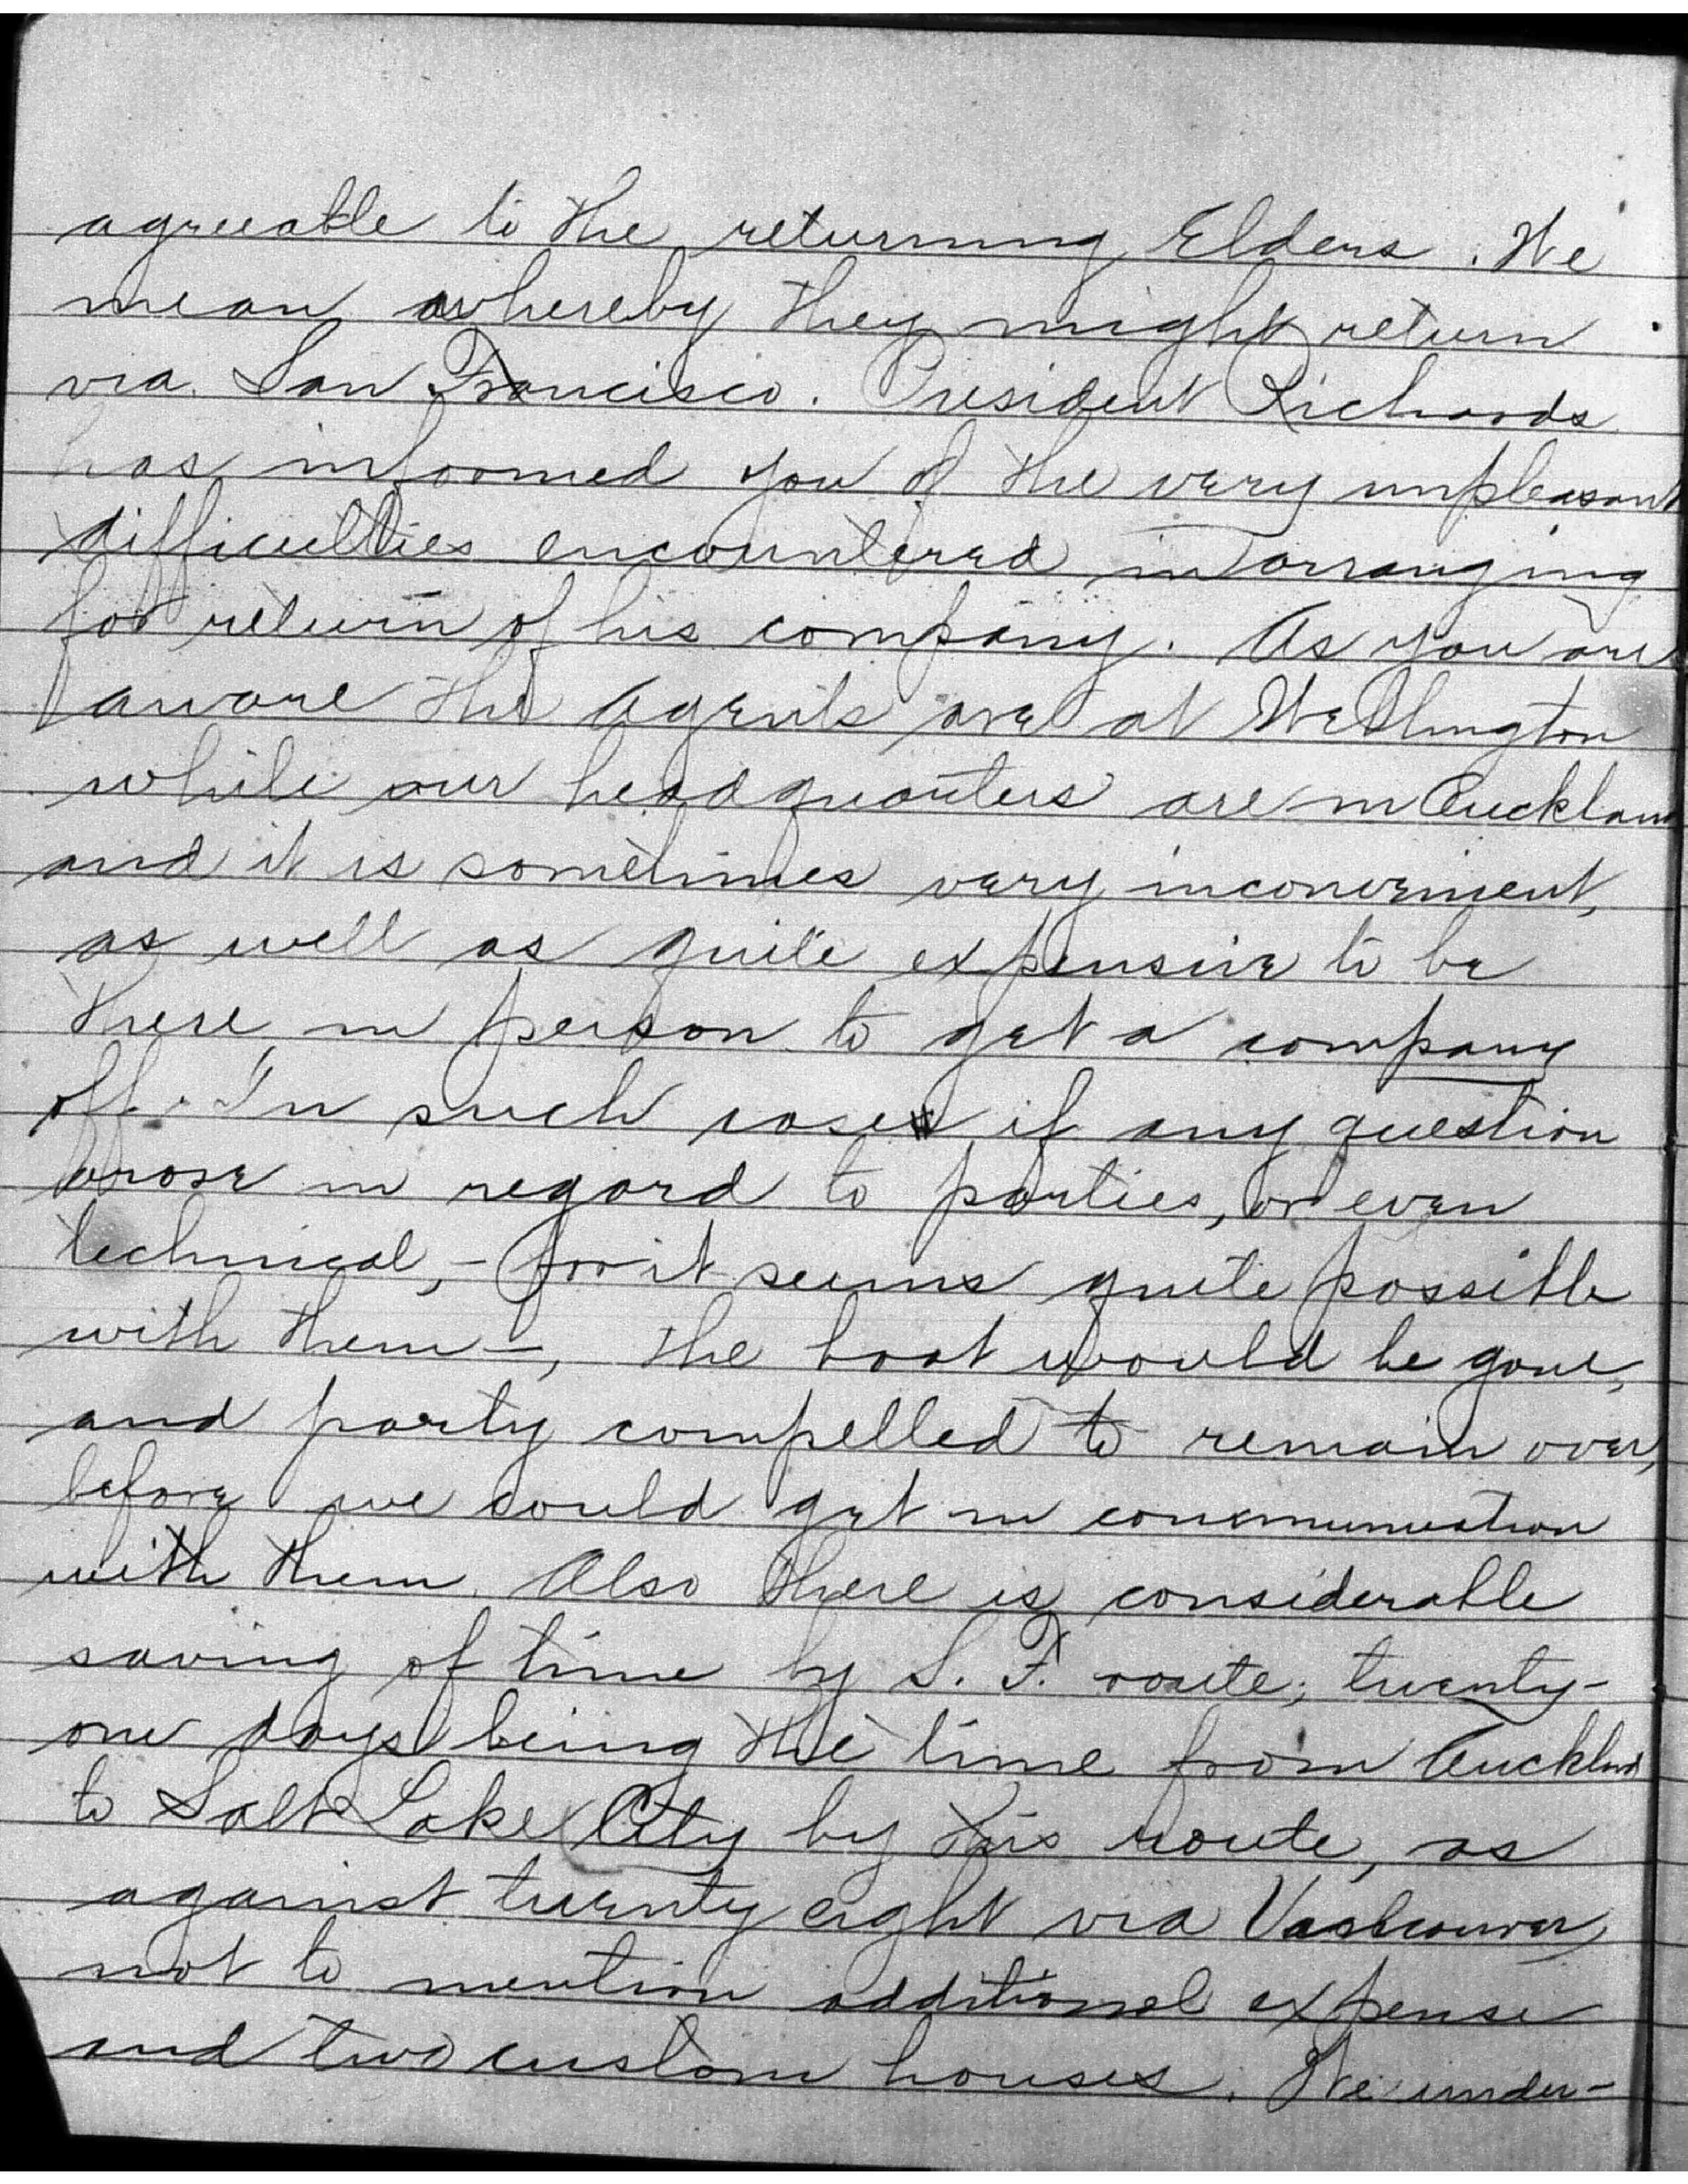 agreeable to the returning Elders. We
mean whereby they might return
via San Francisco. President Richards
has informed you of the very unpleasant
difficulties encountered in arranging
for return of his company. As you are
aware the agents are at Wellington
while our headquarters are in Auckland
and it is sometimes very inconvenient,
as well as quite expensive to be
there in person to get a company
off. In such case, if any question
arose in regard to parties, or even
technical, - for it seems quite possible
with them -, the boat would be gone,
and party compelled to remain over,
before we could get in communication
with them. Also there is considerable
saving of time by S. F. route; twenty-
one days being the time from Auckland
to Salt Lake City by this route, as
against twenty eight via Vancouver,
not to mention additional expense
and two custom houses. We under-